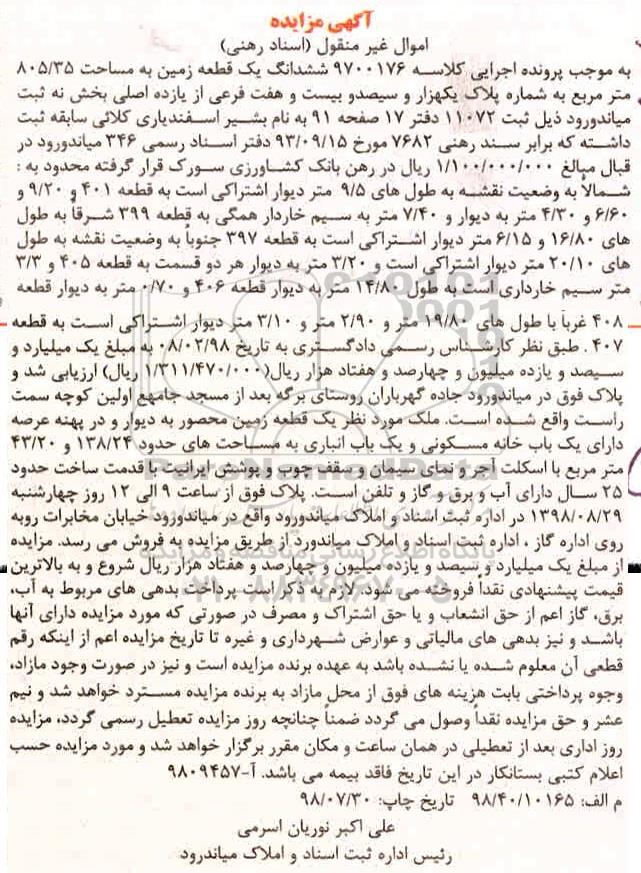 آگهی مزایده
اموال غیر منقول (اسناد رهنی)
به موجب پرونده اجرایی کلاسه ۹۷۰۰۱۷۶ ششدانگ یک قطعه زمین به مساحت ۸۰۵/۳۵
متر مربع به شماره پلاک یکهزار و سیصدو بیست و هفت فرعی از یازده اصلی بخش نه ثبت
میاندورود ذیل ثبت ۱۱۰۷۲ دفتر ۱۷ صفحه ۹۱ به نام بشیر اسفندیاری کلائی سابقه ثبت
داشته که برابر سند رهنی ۷۶۸۲ مورخ ۹۳/۰۹/۱۵ دفتر اسناد رسمی ۳۴۶ میاندورود در
قبال مبالغ ۱/۱۰۰/۰۰۰/۰۰۰ ریال در رهن بانک کشاورزی سورک قرار گرفته محدود به :
شمالاً به وضعیت نقشه به طول های ۹/۵ متر دیوار اشتراکی است به قطعه ۴۰۱ و ۹/۲۰ و
۶/۶۰ و ۴/۳۰ متر به دیوار و ۷/۴۰ متر به سیم خاردار همگی به قطعه ۳۹۹ شرقاً به طول
های ۱۶/۸۰ و ۶/۱۵ متر دیوار اشتراکی است به قطعه ۳۹۷ جنوباً به وضعیت نقشه به طول
های ۲۰/۱۰ متر دیوار اشتراکی است و ۳/۲۰ متر به دیوار هر دو قسمت به قطعه ۴۰۵ و ۳/۳
متر سیم خارداری است به طول ۱۴/۸۰ متر به دیوار قطعه ۴۰۶ و ۰/۷۰ متر به دیوار قطعه
۴۰۸ غرباً با طول های ۱۹/۸۰ متر و ۲/۹۰ متر و ۳/۱۰ متر دیوار اشتراکی است به قطعه
۴۰۷ . طبق نظر کارشناس رسمی دادگستری به تاریخ ۰۸/۰۲/۹۸ به مبلغ یک میلیارد و
سیصد و یازده میلیون و چهارصد و هفتاد هزار ریال(۱/۳۱۱/۴۷۰/۰۰۰ ریال) ارزیابی شد و
پلاک فوق در میاندورود جاده گهرباران روستای برگه بعد از مسجد جامهع اولین کوچه سمت
راست واقع شده است. ملک مورد نظر یک قطعه زمین محصور به دیوار و در پهنه عرصه
دارای یک باب خانه مسکونی و یک باب انباری به مساحت های حدود ۱۳۸/۲۴ و ۴۳/۲۰
متر مربع با اسکلت آجر و نمای سیمان و سقف چوب و پوشش ایرانیت با قدمت ساخت حدود
۲۵ سال دارای آب و برق و گاز و تلفن است. پلاک فوق از ساعت ۹ الی ۱۲ روز چهارشنبه
۱۳۹۸/۰۸/۲۹ در اداره ثبت اسناد و املاک میاندورود واقع در میاندورود خیابان مخابرات روبه
روی اداره گاز ، اداره ثبت اسناد و املاک میاندورد از طریق مزایده به فروش می رسد. مزایده
از مبلغ یک میلیارد و سیصد و یازده میلیون و چهارصد و هفتاد هزار ریال شروع و به بالاترین
قیمت پیشنهادی نقداً فروخته می شود. لازم به ذکر است پرداخت بدهی های مربوط به آب،
برق، گاز اعم از حق انشعاب و یا حق اشتراک و مصرف در صورتی که مورد مزایده دارای آنها
باشد و نیز بدهی های مالیاتی و عوارض شهرداری و غیره تا تاریخ مزایده اعم از اینکه رقم
قطعی آن معلوم شده یا نشده باشد به عهده برنده مزایده است و نیز در صورت وجود مازاد،
وجوه پرداختی بابت هزینه های فوق از محل مازاد به برنده مزایده مسترد خواهد شد و نیم
عشر و حق مزایده نقداً وصول می گردد ضمناً چنانچه روز مزایده تعطیل رسمی گردد، مزایده
روز اداری بعد از تعطیلی در همان ساعت و مکان مقرر برگزار خواهد شد و مورد مزایده حسب
اعلام کتبی بستانکار در این تاریخ فاقد بیمه می باشد. آ-۹۸۰۹۴۵۷
م الف: ۹۸/۴۰/۱۰۱۶۵ تاریخ چاپ: ۹۸/۰۷/۳۰
علی اکبر نوریان اسرمی
رئیس اداره ثبت اسناد و املاک میاندرود